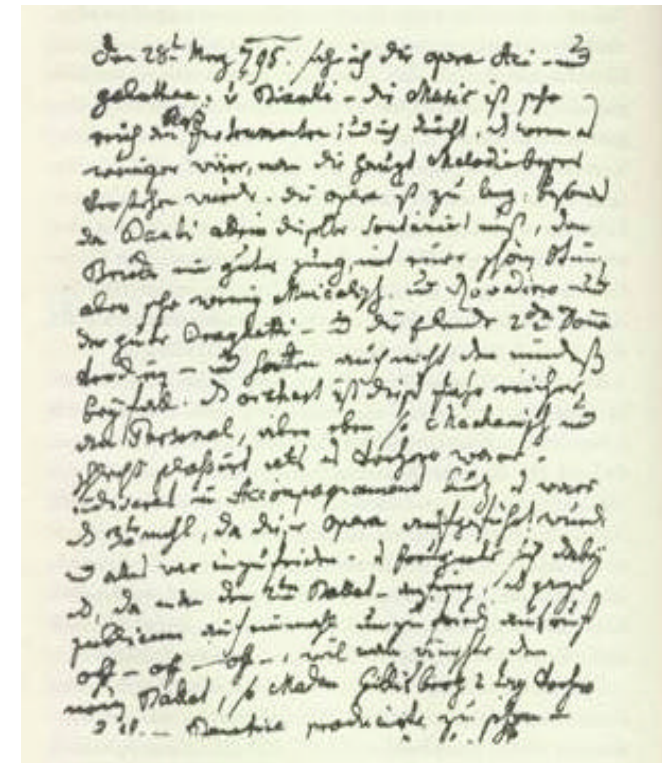 Den 28t Merz 795. sahe ich die opera Aci - und
galathea. v Bianchi - die Music ist sehr
reich an Blas Instrumenten; und ich dächt, es wenn es
weniger wäre, man die Haupt Melodie besser
verstehen würde. die opera ist zu lang, besond
da Banti allein dieselbe soutenieren muß, den
Brida ein guter jung, mit einer schön Stim,
aber sehr wenig Musicalisch. und Rovedino und
der gute Braghetti - und die elende 2da Dona
verdien - und hatten auch nicht den mindest
beyfall. Das orchest ist dieses Jahr reicher,
an Personal, aber eben so Mechanisch und
schlecht plaßirt als es vorhero ware.
indiscret in Accompagnament kurz, es ware
das 3te mahl, da diese opera aufgeführt wurde
und alles war unzufrieden. es ereignete sich dabey
das, da man den 2ten Ballet anfing, das ganze
publicum auf einmahl unzufrieden ausruf
off - off - off -, weil man wünschte den
neuen Ballet, so Madam Hilligsberg 2 tag vorher
Benefice producirte zu sehen